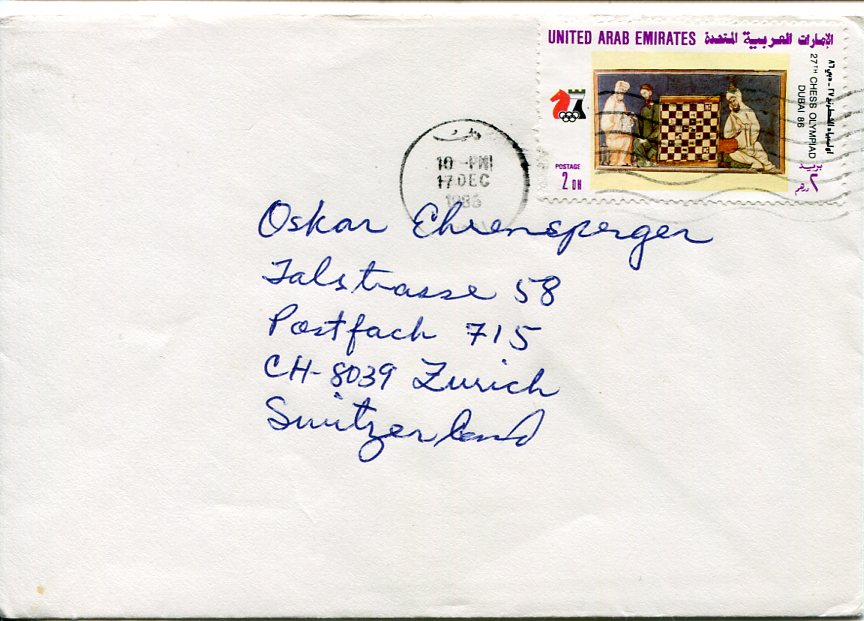 UNITED ARAB EMIRATES الإمارات العربية المتحدة
27TH CHESS OLYMPIAD
DUBAI 86
POSTAGE
2 DH
بريد
٢ درهم
10-PM
17 DEC
1986
Oskar Ehrensperger
Talstrasse 58
Postfach 715
CH-8039 Zurich
Switzerland